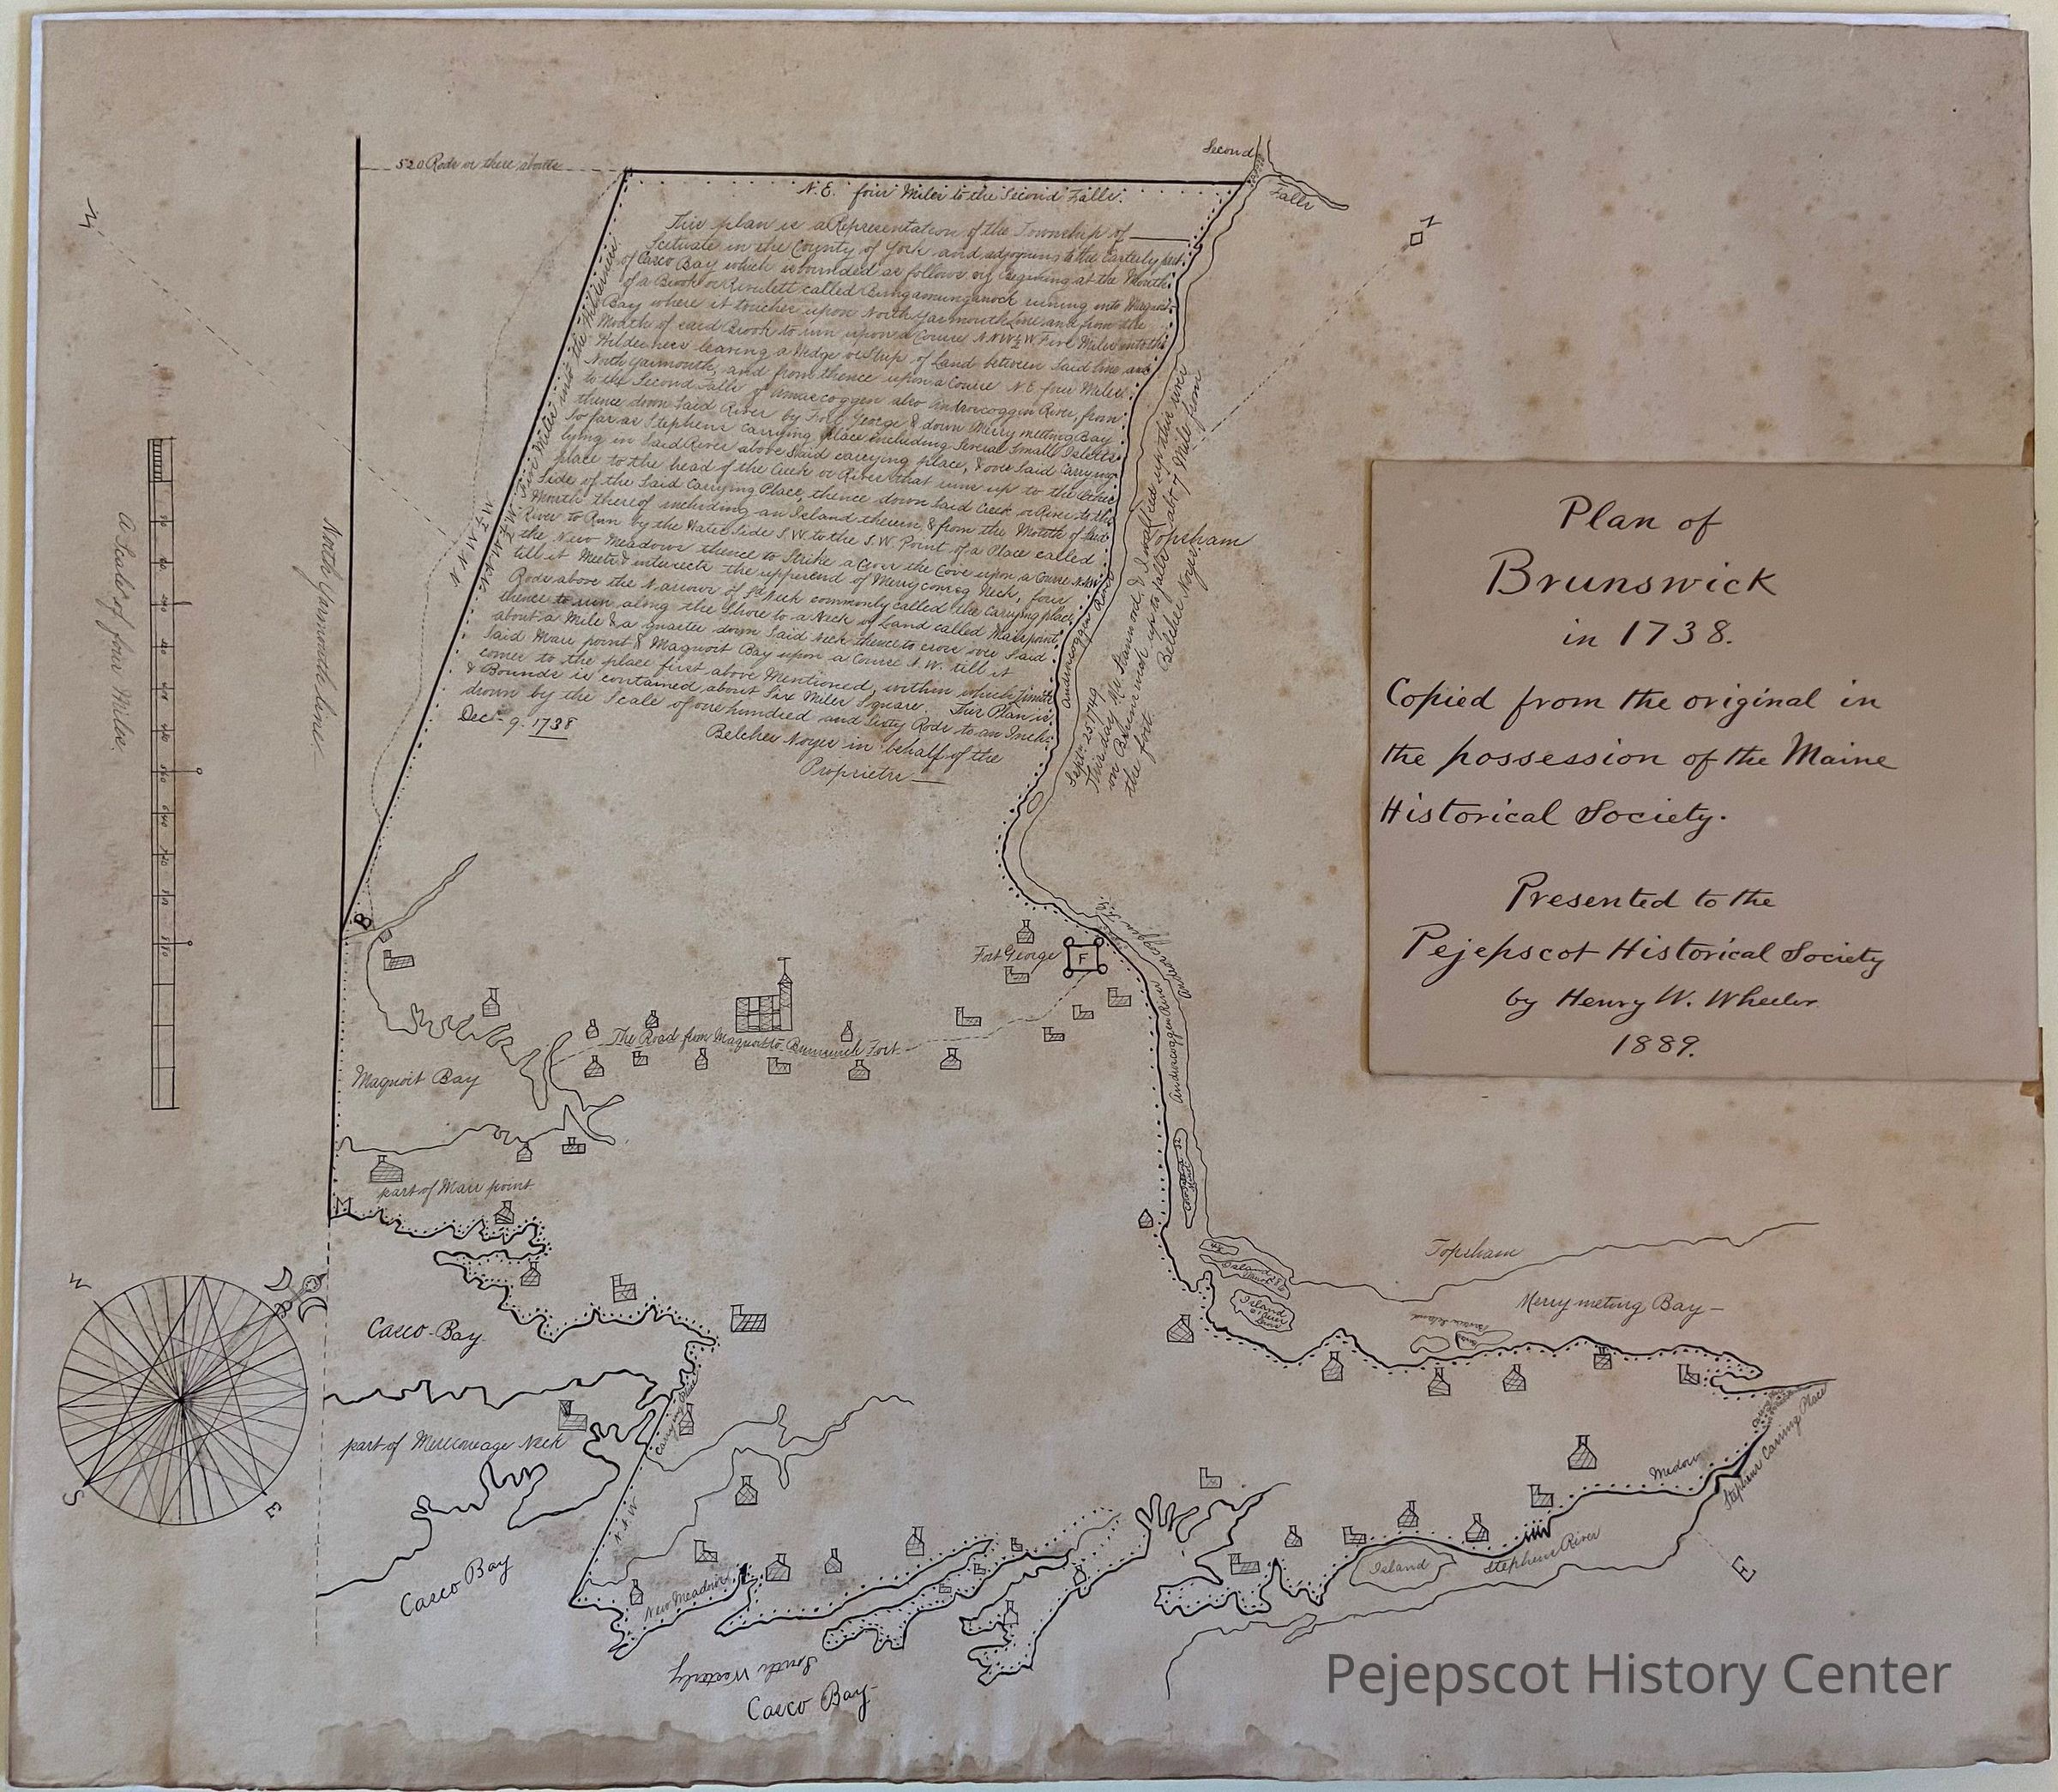 520 Rods or there abouts
Second
Falls
N.E. four Miles to the Second Falls.
This plan is a Representation of the Township of
Scituate in the County of York and adjoyning to the Easterly part
of Casco Bay which is bounded as follows viz Begining at the Mouth
of a Brook or Rivulett called Bungamunganock runing into Maquoit
Bay where it touches upon North Yarmouth Line and from the
Mouth of said Brook to run upon a Course N N W ½ W Five Miles into the
Wilderness leaving a Wedge or Strip of Land between Said line and
North Yarmouth, and from thence upon a Course N.E. four Miles
to the Second Falls of Amascoggen also Androscoggen River, from
thence down Said River by Fort George & down Merry meting Bay
So far as Stephens carrying place including Several Small Isletts
lying in Said River above Said carrying place, & over Said Carrying
place to the head of the Creek or River that runs up to the Other
Side of the Said Carrying Place, thence down Said Creek or River to the
Mouth thereof including an Island therein & from the Mouth of Said
River to Run by the Water Side S.W. to the S.W. Point of a Place called
the New Meadows thence to Strike a Cross the Cove upon a Course N.N.W
till it Meets & intersects the upper end of Merryconeg Neck, four
Rods above the Narrows of sd Neck commonly called the Carrying place,
thence to run along the Shore to a Neck of Land called Mair point,
about a Mile & a quarter down Said Neck thence to cross over Said
Said Mair point & Maquoit Bay upon a Course N.W. till it
comes to the place first above Mentioned, within which Limits
& Bounds is contained about Six Miles Square. This Plan is
drawn by the Scale of one hundred and Sixty Rods to an Inch.
Decr. 9. 1738
Belcher Noyes in behalf of the
Proprietrs
Five Miles into the Wilderness
North Yarmouth line
A Scale of four Miles
Topsham
Androscoggen River
Septr. 25 1749
This day Mr Stanwood & I walked up this river
on Brunswick up to falls abot 7 Mile from
the fort
Belcher Noyes
N
W
B
Fort George
F
The Road from Maquoit to Brunswick Fort
Androscoggen River
Maquoit Bay
part of Mair point
M
Casco-Bay
part of Merconeage Neck
Carrying Place
N.N.W
Casco Bay
New Meadows
South Westerly
Casco Bay
Island
Island
Topsham
Merry meting Bay
Medow
Stephens Carring Place
Stephens River
Island
E
W
S
E
Plan of
Brunswick
in 1738.
Copied from the original in
the possession of the Maine
Historical Society.
Presented to the
Pejepscot Historical Society
by Henry W. Wheeler
1889.
Pejepscot History Center